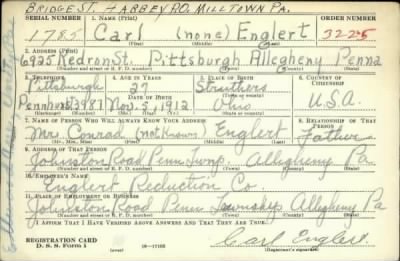 BRIDGE ST. HARBEY P.O. MILLTOWN PA.
SERIAL NUMBER 1. NAME (Print) ORDER NUMBER
1785 Carl (none) Englert 3225
(First) (Middle) (Last)
2. ADDRESS (Print)
6925 Redron St. Pittsburgh Allegheny Penna
(Number and street or R. F. D. number) (Town) (County) (State)
3. TELEPHONE 4. AGE IN YEARS 5. PLACE OF BIRTH 6. COUNTRY OF CITIZENSHIP
Pittsburgh 27 Struthers
DATE OF BIRTH
Pennhurst 3981 Nov. 5, 1912 Ohio U.S.A.
(Exchange) (Number) (Mo.) (Day) (Yr.) (State or country)
7. NAME OF PERSON WHO WILL ALWAYS KNOW YOUR ADDRESS 8. RELATIONSHIP OF THAT PERSON
Mr. Conrad (not known) Englert Father
(Mr., Mrs., Miss) (First) (Middle) (Last)
9. ADDRESS OF THAT PERSON
Johnston Road Penn Twnp. Allegheny Pa
(Number and street or R. F. D. number) (Town) (County) (State)
10. EMPLOYER'S NAME
Englert Reduction Co.
11. PLACE OF EMPLOYMENT OR BUSINESS
Johnston Road Penn Township Allegheny Pa
(Number and street or R. F. D. number) (Town) (County) (State)
I AFFIRM THAT I HAVE VERIFIED ABOVE ANSWERS AND THAT THEY ARE TRUE.
REGISTRATION CARD
D. S. S. Form 1 16—17105 Carl Englert
(Registrant's signature)